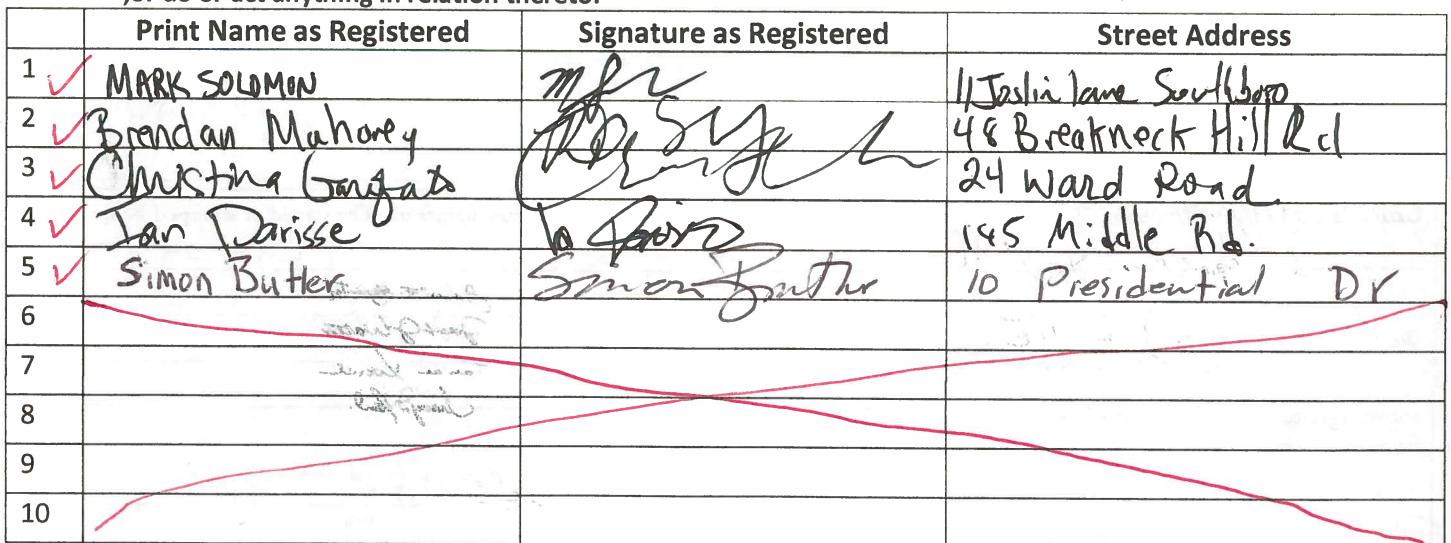 ,or do or act anything in relation thereto.
Print Name as Registered Signature as Registered Street Address
1 MARK SOLOMON 11 Joslin lane Southboro
2 Brendan Mahoney 48 Breakneck Hill Rd
3 Christina 24 Ward Road
4 Ian Parisse 145 Middle Rd.
5 Simon Butler Simon Butler 10 Presidential Dr
6
7
8
9
10